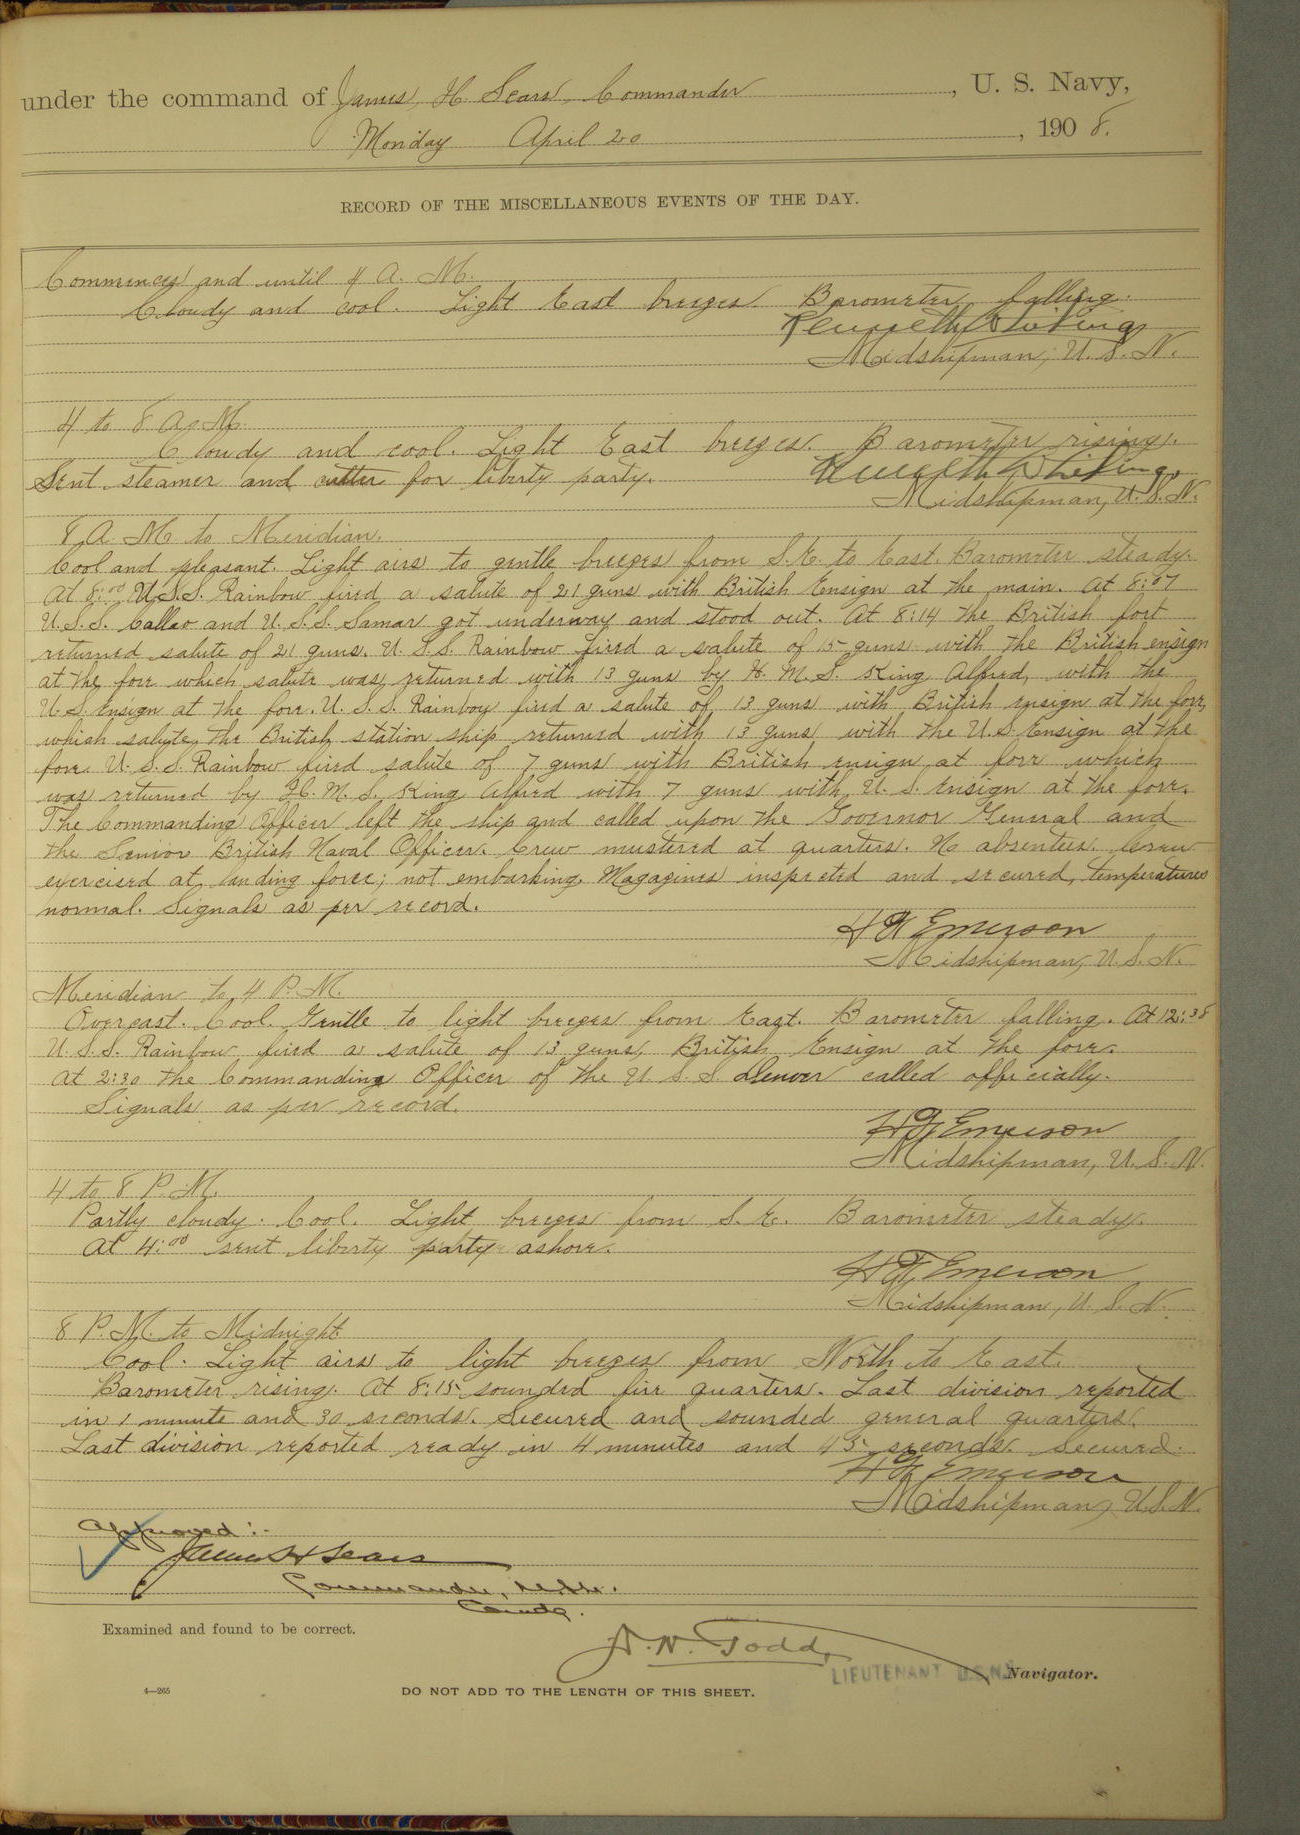 under the command of James H. Sears, Commander, U. S. Navy,
Monday April 20, 1908.
RECORD OF THE MISCELLANEOUS EVENTS OF THE DAY.
Commences and until 4 A. M.
Cloudy and cool. Light East breezes. Barometer falling.
Kenneth Whiting
Midshipman, U. S. N.
4 to 8 A. M.
Cloudy and cool. Light East breezes. Barometer rising.
Sent steamer and cutter for liberty party.
Kenneth Whiting,
Midshipman, U. S. N.
8 A. M. to Meridian.
Cool and pleasant. Light airs to gentle breezes from S.E. to East. Barometer steady.
At 8:00 U.S.S. Rainbow fired a salute of 21 guns with British Ensign at the main. At 8:07
U.S.S. Callao and U.S.S. Samar got underway and stood out. At 8:14 the British fort
returned salute of 21 guns. U.S.S. Rainbow fired a salute of 15 guns with the British ensign
at the fore which salute was returned with 13 guns by H. M. S. King Alfred, with the
U.S. Ensign at the fore. U.S.S. Rainboy fired a salute of 13 guns with British ensign at the fore,
which salute the British station ship returned with 13 guns with the U.S. Ensign at the
fore. U.S.S. Rainbow fired salute of 7 guns with British ensign at fore which
was returned by H. M. S. King Alfred with 7 guns with U. S. Ensign at the fore.
The Commanding Officer left the ship and called upon the Governor General and
the Senior British Naval Officer. Crew mustered at quarters. No absentees. Crew
exercised at landing force; not embarking. Magazines inspected and secured, temperatures
normal. Signals as per record.
H F Emerson
Midshipman, U. S. N.
Meridian to 4 P. M.
Overcast. Cool. Gentle to light breezes from East. Barometer falling. At 12:38
U.S.S. Rainbow fired a salute of 13 guns, British Ensign at the fore.
At 2:30 the Commanding Officer of the U. S. S. Denver called officially.
Signals as per record.
H F Emerson
Midshipman, U. S. N.
4 to 8 P. M.
Partly cloudy. Cool. Light breezes from S. E. Barometer steady.
At 4:00 sent liberty party ashore.
H F Emerson
Midshipman, U. S. N.
8 P. M. to Midnight
Cool. Light airs to light breezes from North to East.
Barometer rising. At 8:15 sounded fire quarters. Last division reported
in 1 minute and 30 seconds. Secured and sounded general quarters.
Last division reported ready in 4 minutes and 45 seconds. Secured.
H F Emerson
Midshipman, U.S.N.
Approved:-
James H Sears
Commander, U.S.N.
Comdg.
Examined and found to be correct.
Todd,
LIEUTENANT U.S.N. Navigator.
4—265
DO NOT ADD TO THE LENGTH OF THIS SHEET.